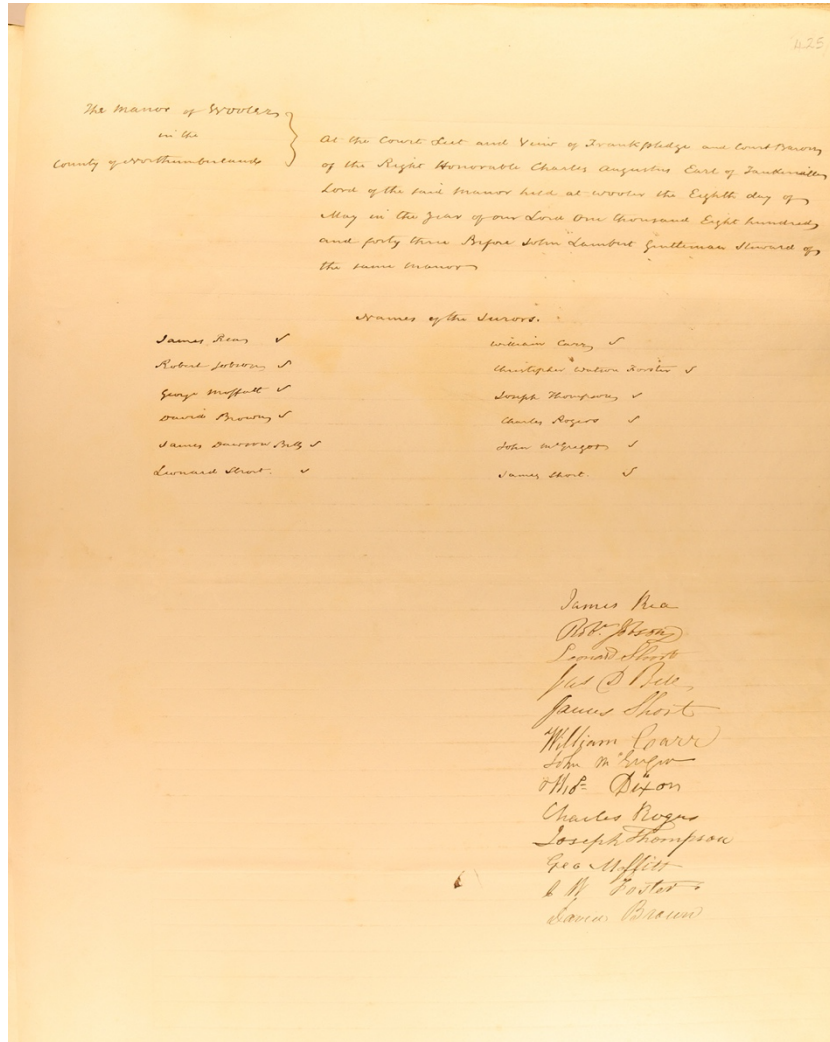 425
The Manor of Wooler
in the
County of Northumberland
At the Court Leet and View of Frankpledge and Court Baron
of the Right Honorable Charles Augustus Earl of Tankerville
Lord of the said Manor held at Wooler the Eighth day of
May in the Year of our Lord One thousand Eight hundred
and forty three Before John Lambert Gentleman Steward of
the same Manor
Names of the Jurors.
James Rea ✓ William Carr ✓
Robert Jobson ✓ Christopher Watson Forster ✓
George Moffatt ✓ Joseph Thompson ✓
David Brown ✓ Charles Rogers ✓
James Dawson Bell ✓ John McGregor ✓
Leonard Short. ✓ James Short. ✓
James Rea
Robt. Jobson
Leonard Short
Jas D Bell
James Short
William Carr
John McGregor
Dixon
Charles Rogers
Joseph Thompson
Geo Moffitt
C W Foster
David Brown